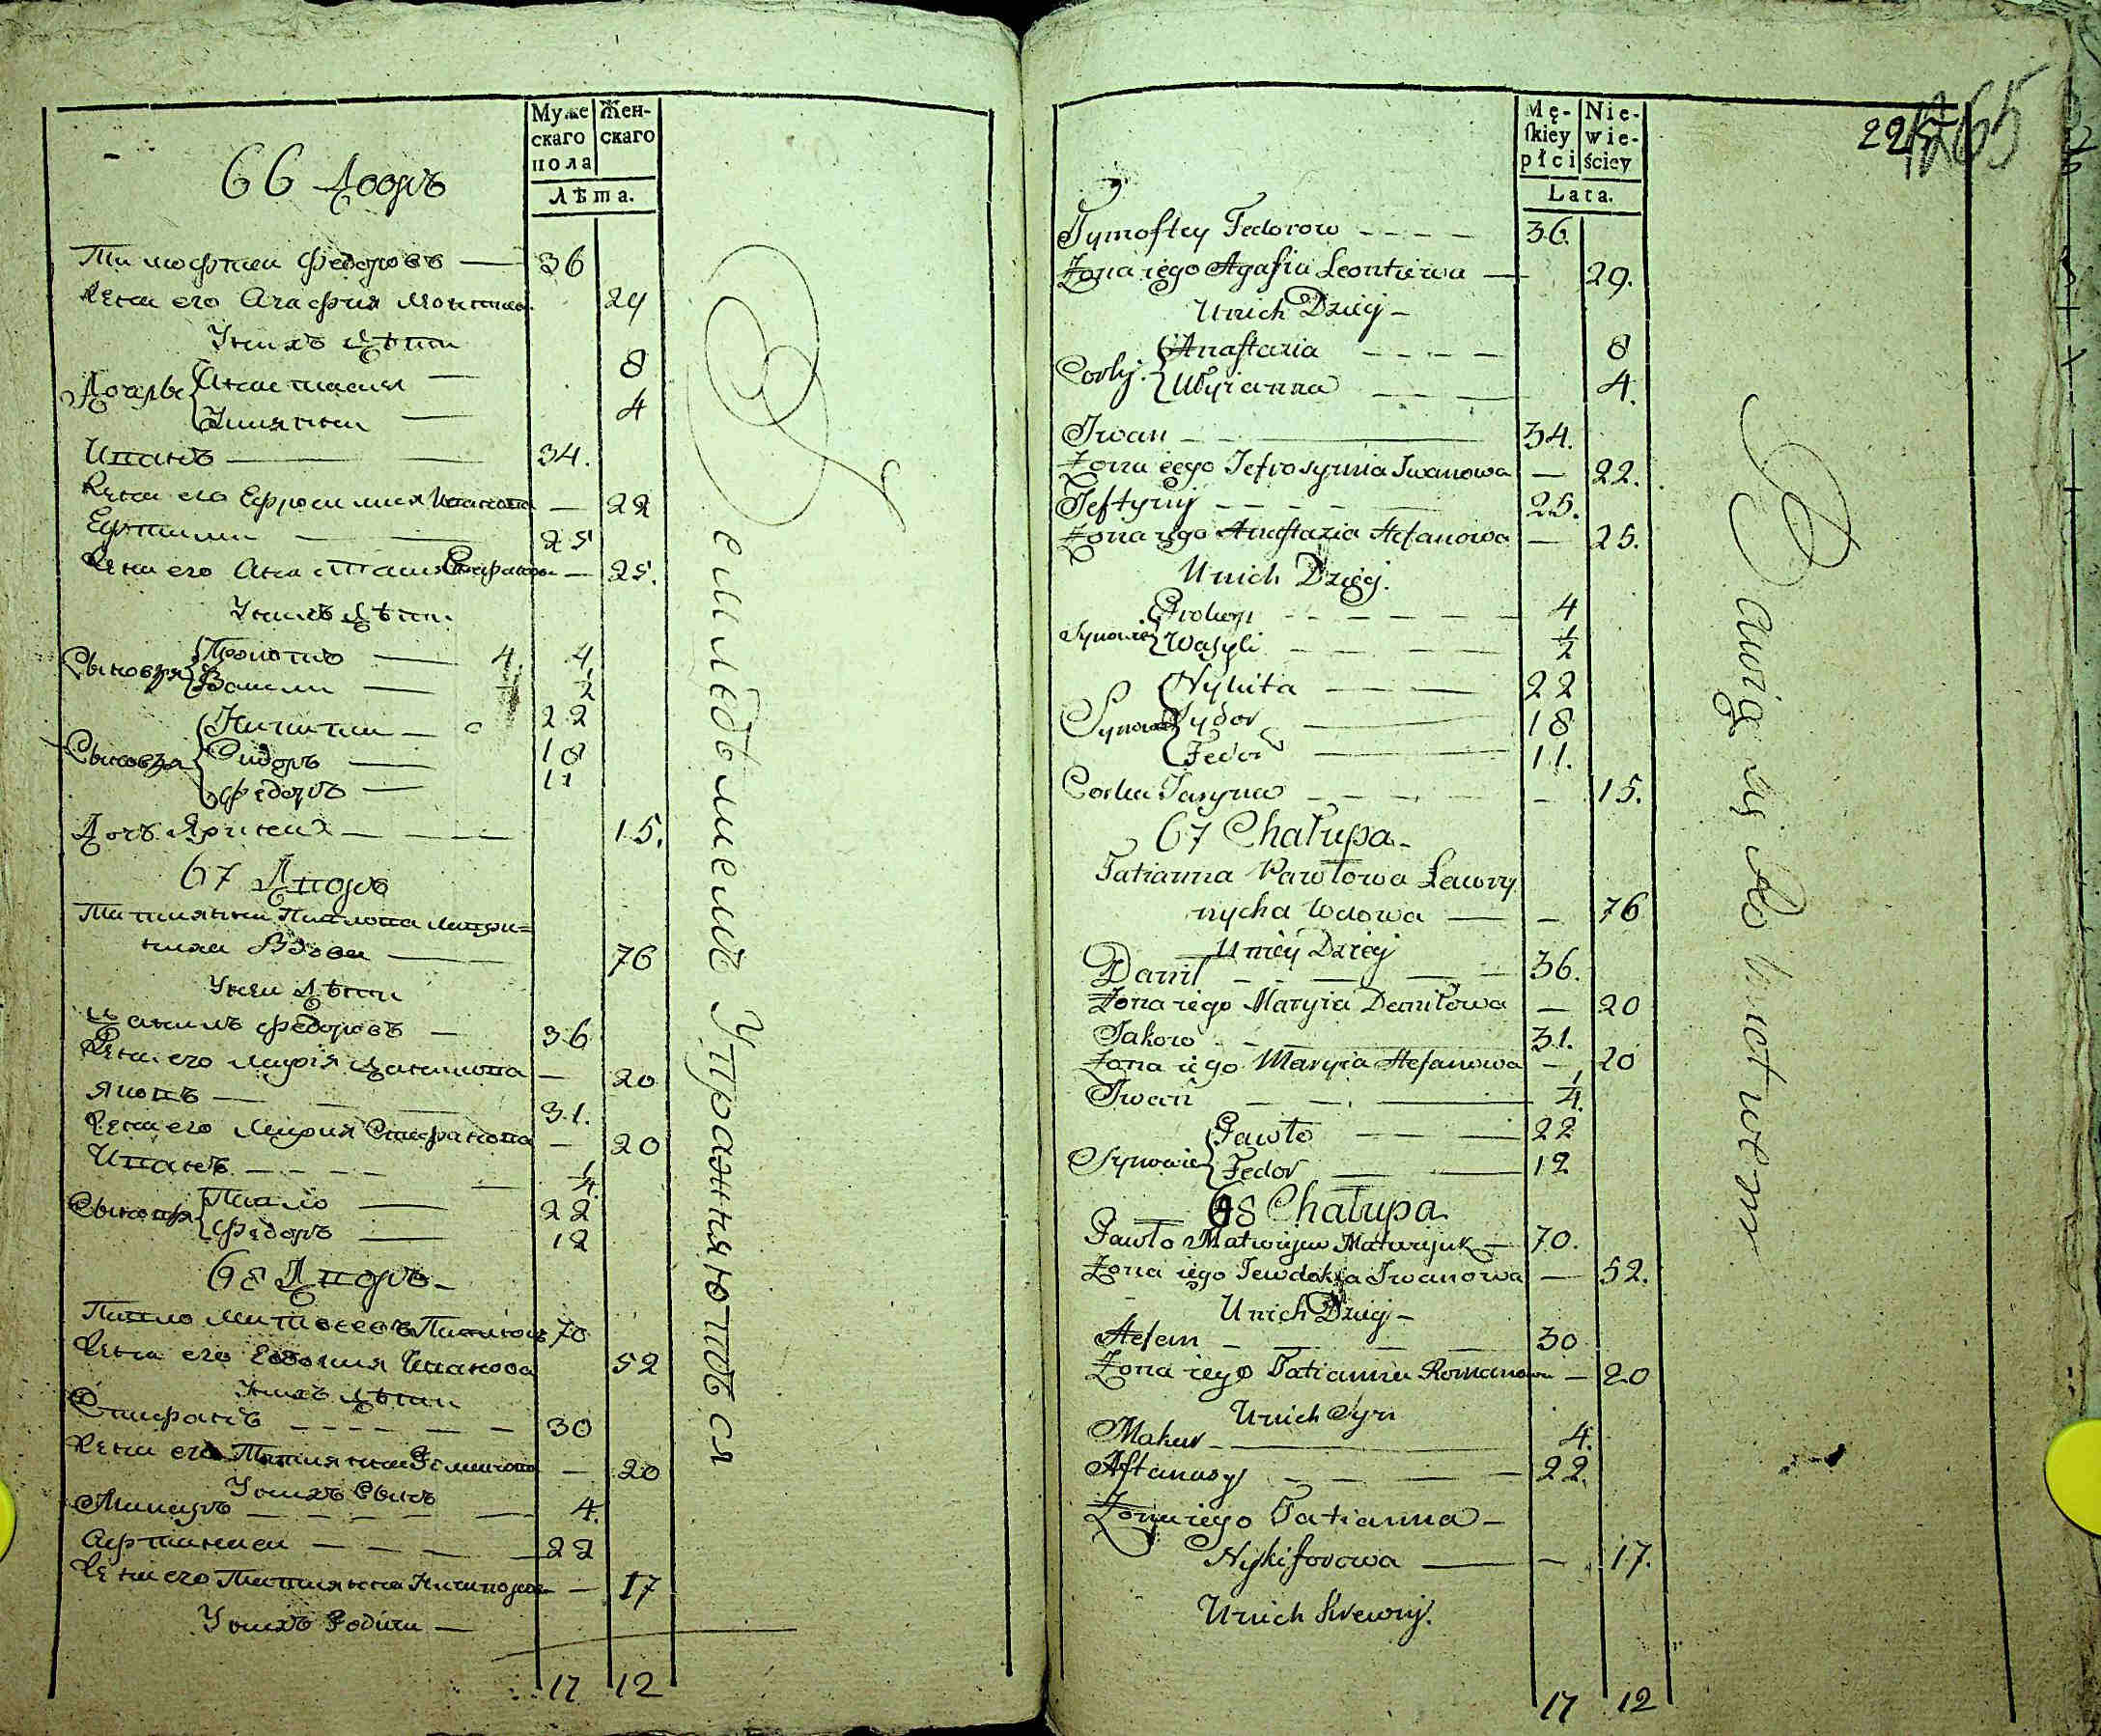 Муже
скаго
пола
Жен-
скаго
Лѣта.
66 Дворъ
Тимофтеи Федоровъ — 36
Жена его Агафия 29
У нихъ дѣти
Дочерѣ Анастасия — 8
Улиянна — 4
Иванъ — 34.
Жена его Ефросимия Иванова — 22
Ефтими — 25
Жена его Анастасия Стефанова — 25.
У нихъ дѣти.
Сыновя Прокопъ — 4. 4
Васили — 1/2
Сыновя Никита — 22
Сидоръ — 18
Федоръ — 11
Дочь Ярина — 15.
67 Дворъ
Татиянна Павлова Лаври=
ниха Вдова — 76
У неи дѣти
Данилъ Федоровъ — 36
Жена его Мария Данилова — 20
Яковъ — 31.
Жена его Мария Стефанова — 20
Иванъ — 1/4.
Сыновя Павло — 22
Федоръ — 12
68 Дворъ
Павло Матвеевъ 70
Жена его Евдокия Иванова 52
У нихъ дѣти
Стефанъ — 30
Жена его Татиянна Романова — 20
У нихъ Сынъ
Макаръ — 4.
Афтанаси — 22
Жена его Татиянна Никифорова — 17
У нихъ Родичи —
17 12
Землѣдѣлиемъ Упражняютъся
Mę-
ſkiey
płci
Nie-
wie-
ściey
Lata.
225
65
Tymoftey Fedorow — 36.
Żona iego Agafia Leontiewa — 29.
U nich Dziéj —
Corky. Anastazia — 8
Ulyianna — 4.
Iwan — 34.
Żona iego Jefrosymia Iwanowa — 22.
Jeftymij — 25.
Żona iego Anastazia Stefanowa — 25.
U nich Dziéj.
Synowie Prokop — 4
Wasyli — 1/2
Synowie Nykita — 22
Sydor — 18
Fedor — 11.
Corka Jaryna — 15.
67 Chałupa.
Tatianna Pawłowa Ławry
nycha Wdowa — 76
U niéj Dziéj
Danił — 36.
Żona iego Maryia Daniłowa — 20
Jakow — 31.
Żona iego Maryia Stefanowa — 20
Iwan — 1/4.
Synowie Pawło — 22
Fedor — 12
68 Chałupa
Pawło Matwijew Matwijuk — 70.
Żona iego Jewdokija Iwanowa — 52.
U nich Dziéj —
Stefan — 30
Żona iego Tatianna Romanowa — 20
U nich Syn
Makar — 4.
Aftanasy — 22.
Żona iego Tatianna —
Nykiforowa — 17.
U nich Krewnij.
17 12